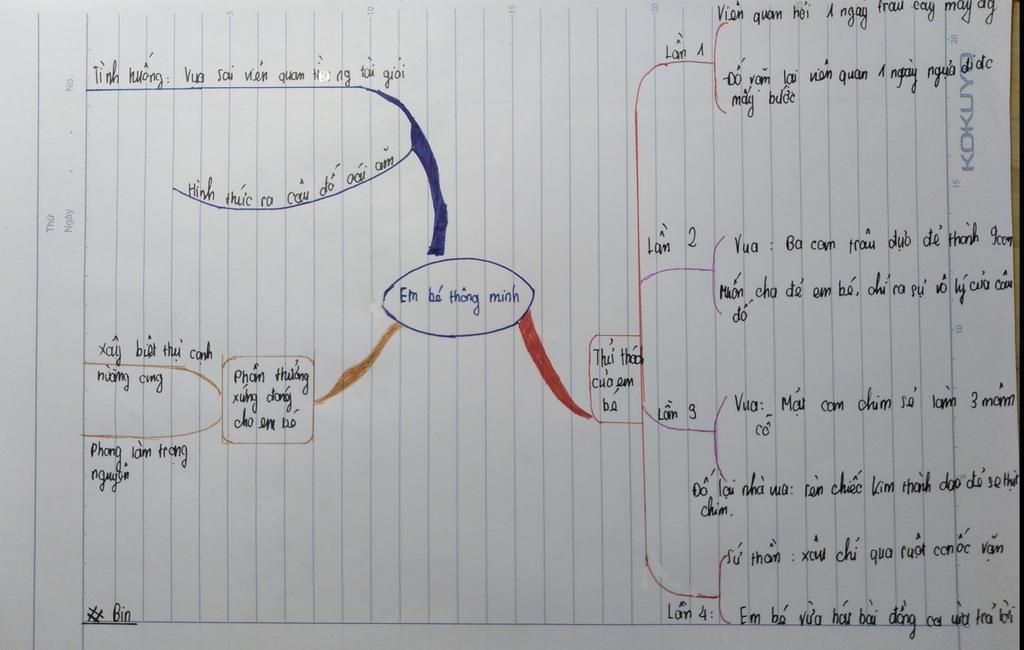 Viên quan hỏi 1 ngày trâu cày mấy
Lần 1
Đố vặn lại viên quan 1 ngày ngựa đi đc
mấy bước
Tình huống: Vua sai viên quan tài giỏi
Hình thức ra câu đố oái oăm
Em bé thông minh
Lần 2
Vua : Ba con trâu đực đẻ thành 9 con
Muốn cha đẻ em bé, chỉ ra sự vô lý của câu
đố
Thử thách
của em
bé
Lần 3
Vua: Một con chim sẻ làm 3 mâm
cỗ
Đố lại nhà vua: rèn chiếc kim thành dao để sẻ thịt
chim.
Sứ thần : xâu chỉ qua ruột con ốc vặn
Lần 4:
Em bé vừa hát bài đồng ca vừa trả lời
Phần thưởng
xứng đáng
cho em bé
xây biệt thự cạnh
Phong làm trạng
nguyên
Bin
KOKUYO
No.
Thứ
Ngày
5
10
15
20
20
15
10